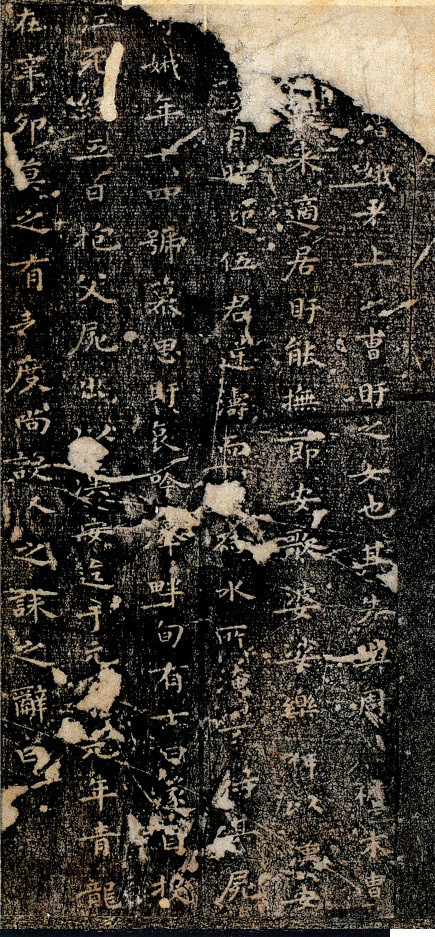 娥者上曹盱之女也其先與周祖末胄
來適居盱能撫節安歌婆娑樂神以漢安
月時迎伍君逆濤而為水所淹不得其屍
娥年十四號慕思盱哀吟澤畔旬有七日遂自投
江死經五日抱父屍出以漢安迄于元元年青龍
在辛卯莫之有表度尚設之誄之辭曰